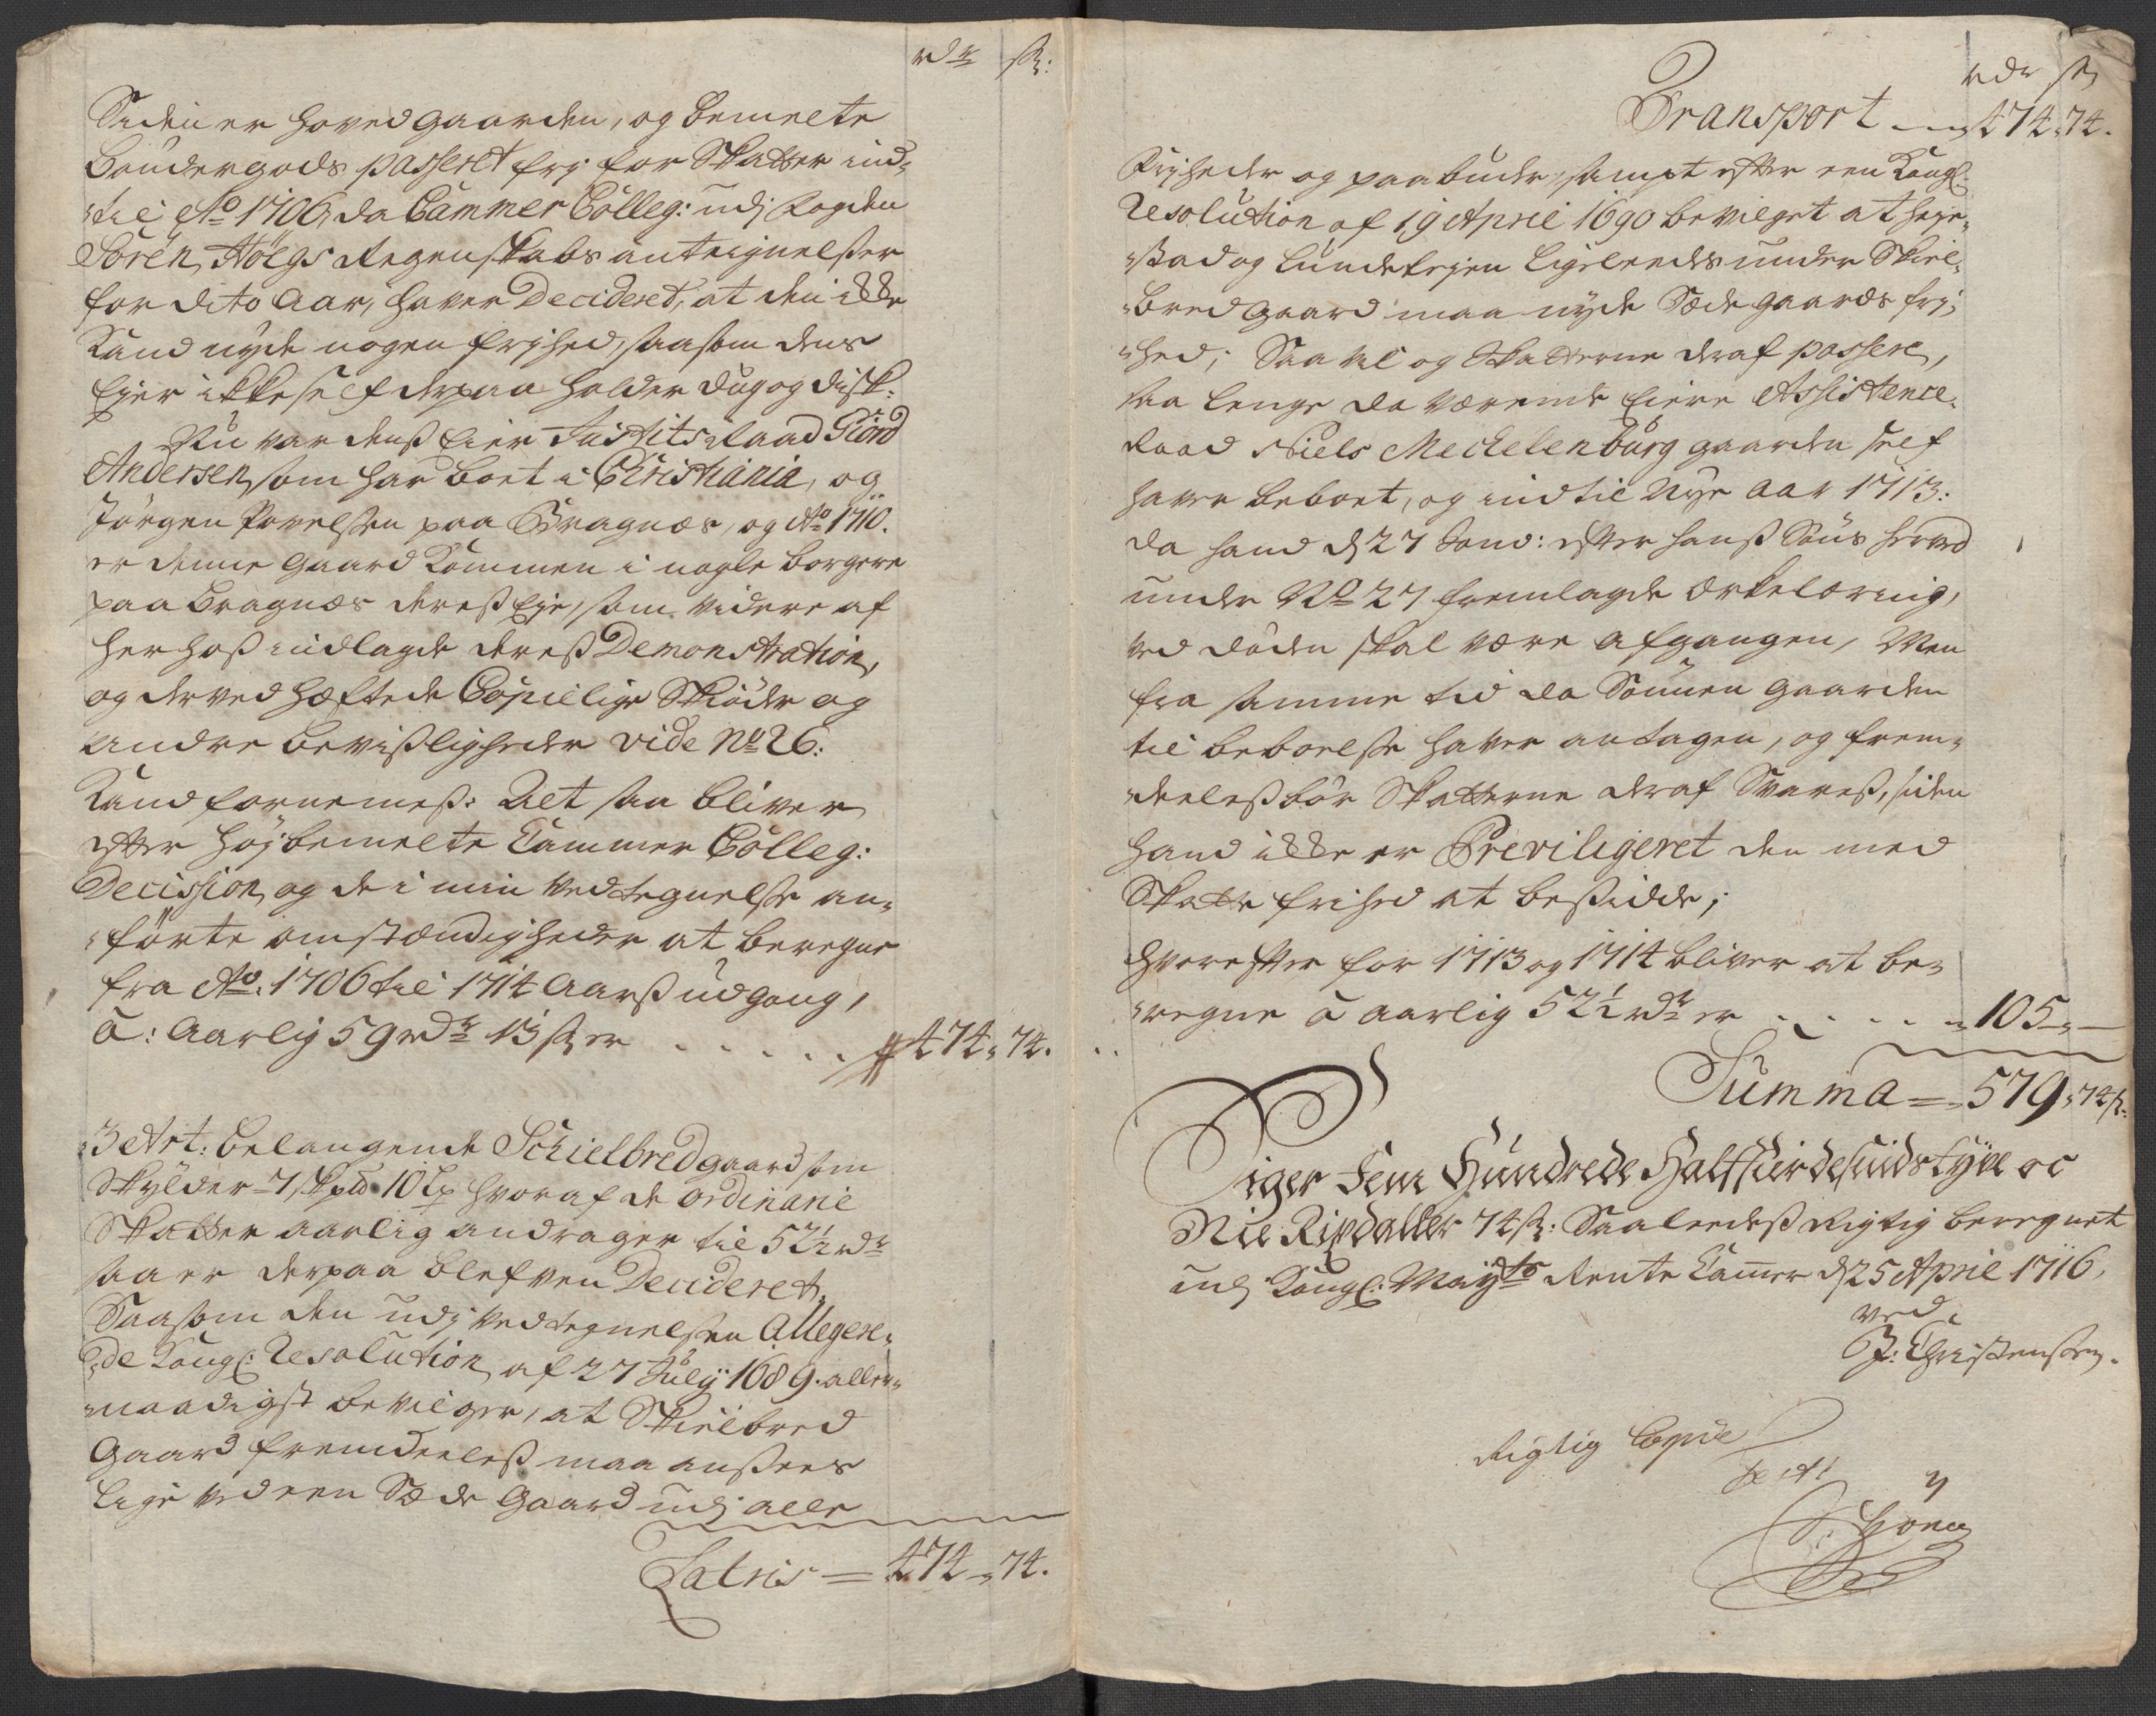 rdr sk:
Siden er hovedgaarden, og bemelte
bøndergods passeret frj for Skatter ind-
til Ao 1706, da Cammer Colleg: udj Fogden
Sören Höegs Regenskabs anteignelser
for dito Aar, haver Decideret, at den ikke
kand nyde nogen frjhed, saasom dens
Ejer ikke self derpaa holder dug og disk:
Nu var denß Eier Justits Raad Giörd
Andersen, som har boet i Christiania, og
Jörgen Povelsen paa Bragnæs, og Ao 1710.
er denne gaard kommen i nogle borgere
paa Bragnæs dereß Eje, som videre af
her hoß indlagde dereß Demonstration,
og derved hæftede Copielige Skiöder og
andre beviißligheder vide No 26:
kand fornemeß: Alt saa bliver
efter høj bemelte Cammer Colleg:
Decission, og de i min Vedtegnelse an-
förte omstændigheder at beregne
fra Ao. 1706 til 1714 Aarß udgang,
à: Aarlig 59 rdr 13 sk er . . . . . 474 „ 74.
3 Art: belangende Schielbred gaard som
Skylder 7 skpd 10 Lp hvoraf de ordinarie
Skatter aarlig andrager til 52½ rdr
saa er derpaa blefven Decideret,
Saasom den udj Vedtegnelsen Allegere-
de Kongl: Resolution af 27 July 1689. aller-
naadigst bevilger, at Skielbred
Gaard fremdeeleß maa ansees
lige ved een Sæde Gaard udj alle
Latris = 474 „ 74.
rdr sk
Transport 474 „ 74.
Frjheder og paabuder, sampt efter een Kongl:
Resolution af 19 April 1690 bevilget at
stad og Lundetejen ligeleedes under Skiel-
bred gaard maa nyde Sædegaards frj-
hed, Saa vel og Skatterne deraf passere,
saa lenge da værende Eiere Assistence
Raad Niels Mechelenburg gaarden self
haver beboet, og indtil Nyt Aar 1713:
da hand d 27 Janv: efter hanß Söns herved
under No 27 fremlagde Erkelæring,
ved döden skal være afgangen, Men
fra samme tid da Sönnen gaarden
til beboelse haver antagen, og frem-
deeleß bör Skatterne deraf Svareß, siden
hand ikke er Previligeret den med
Skatte frihed at beßidde;
hvorefter for 1713 og 1714 bliver at be-
regne à aarlig 52½ rdr er . . . . . 105 „ —
Summa = 579 „ 74 sk.
Siger Fem Hundrede Halffierdesindstyve oc
Nie Rixdaller 74 sk: Saaleedeß Rigtig beregnet
udj Kongl: Mayts Rente Cammer d 25 April 1716,
ved
J: Christensen.
Rigtig Copie
test